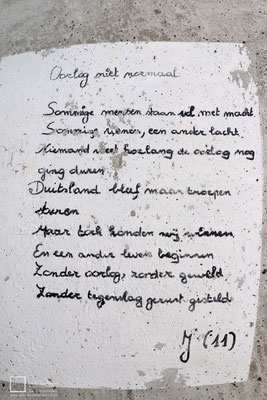 Oorlog niet normaal
Sommige mensen staan vol met macht
Sommige wenen, een ander lacht
Niemand weet hoelang de oorlog nog
ging duren
Duitsland bleef maar troepen
sturen
Maar toch konden wij winnen
En een ander leven beginnen
Zonder oorlog, zonder geweld
Zonder tegenslag gerust gesteld
J (11)